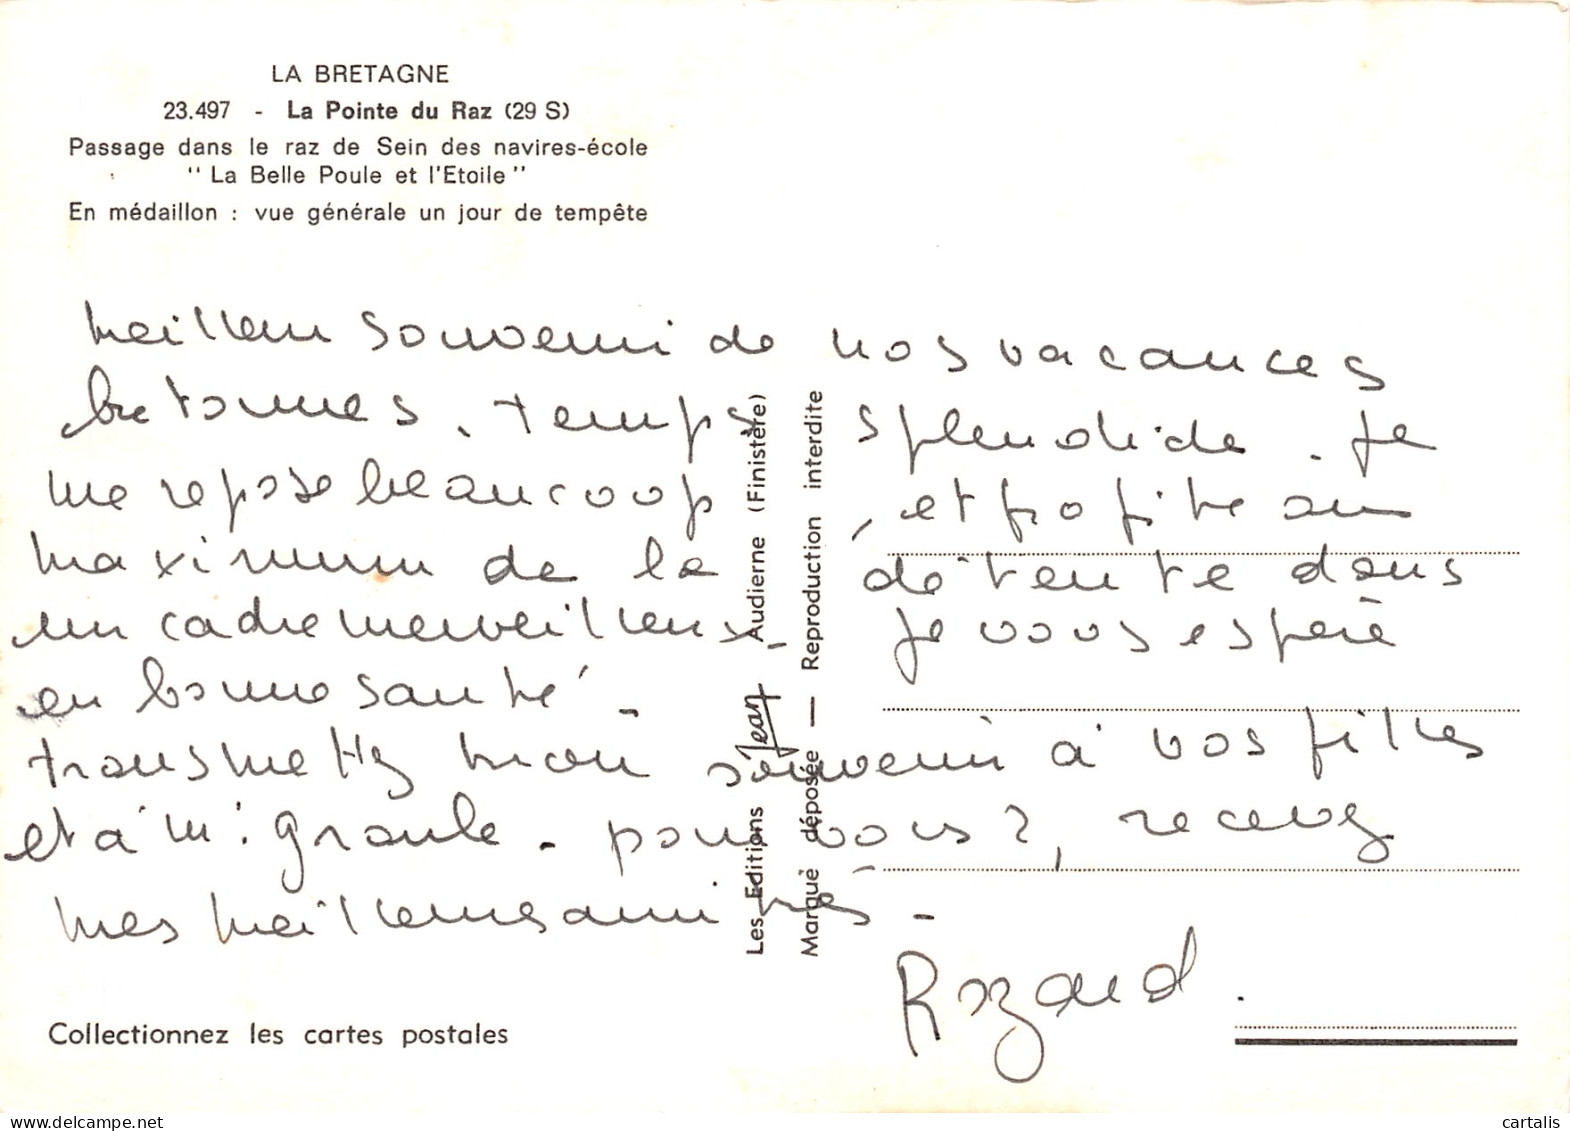 LA BRETAGNE
23.497 - La Pointe du Raz (29 S)
Passage dans le raz de Sein des navires-école
" La Belle Poule et l'Etoile "
En médaillon : vue générale un jour de tempête
meilleur souvenir de nos vacances
bretonnes. temps splendide. Je
me repose beaucoup, et profite au
maximum de la détente dans
un cadre merveilleux. Je vous espère
en bonne santé.
transmettez mon souvenir à vos filles
et à m. - pour vous 2, recevez
mes meilleures amitiés -
Les Editions Jean - Audierne (Finistère)
Marque déposée — Reproduction interdite
Collectionnez les cartes postales
cartalis